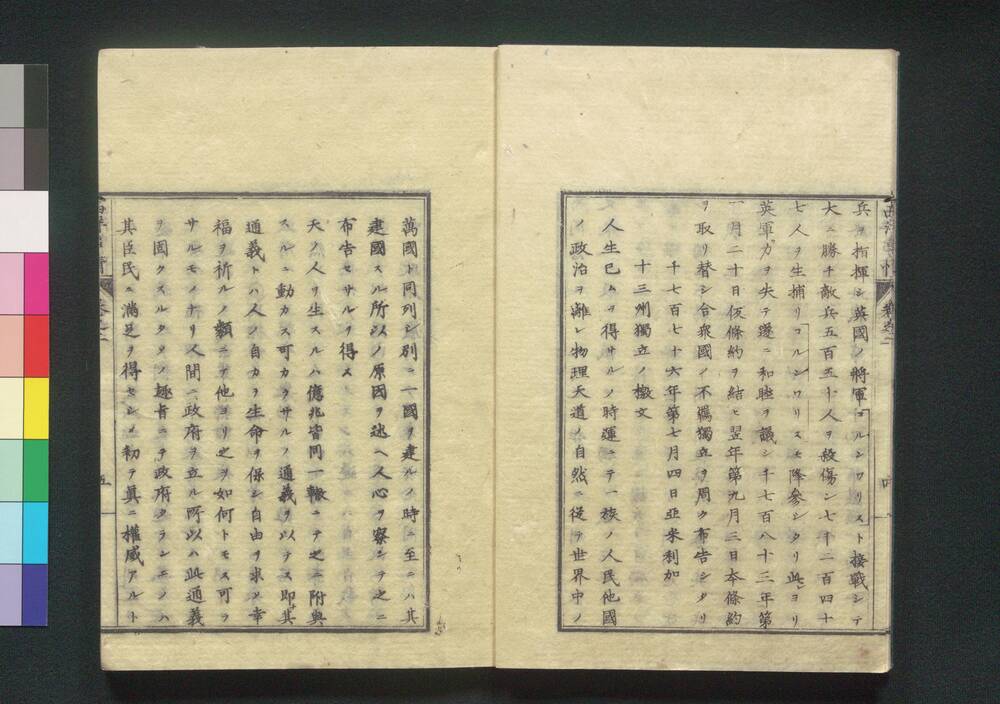 兵ヲ指揮シ英國ノ將軍コルンワリスト接戰シテ
大ニ勝チ敵兵五百五十人ヲ殺傷シ七千二百四十
七人ヲ生捕リコルンワリスモ降參シタリ此ヨリ
英軍力ヲ失テ遂ニ和睦ヲ議シ千七百八十三年第
一月二十日仮條約ヲ結ヒ翌年第九月三日本條約
ヲ取リ替シ合衆國ノ不羈獨立ヲ周ク布告シタリ
千七百七十六年第七月四日亞米利加
十三州獨立ノ檄文
人生已ムヲ得サルノ時運ニテ一族ノ人民他國
ノ政治ヲ離レ物理天道ノ自然ニ從テ世界中ノ
西洋事情
卷之二
四
萬國ト同列シ別ニ一國ヲ建ルノ時ニ至ニハ其
建國スル所以ノ原因ヲ述ヘ人心ヲ察シテ之ニ
布告セサルヲ得ス
天ノ人ヲ生スルハ億兆皆同一轍ニテ之ニ附與
スルニ動カス可カラサルノ通義ヲ以テス即其
通義トハ人ノ自カラ生命ヲ保シ自由ヲ求メ幸
福ヲ祈ルノ類ニテ他ヨリ之ヲ如何トモス可ラ
サルモノナリ人間ニ政府ヲ立ル所以ハ此通義
ヲ固クスルタメノ趣旨ニテ政府タランモノハ
其臣民ニ滿足ヲ得セシメ初テ眞ニ權威アルト
西洋事情
卷之二
五